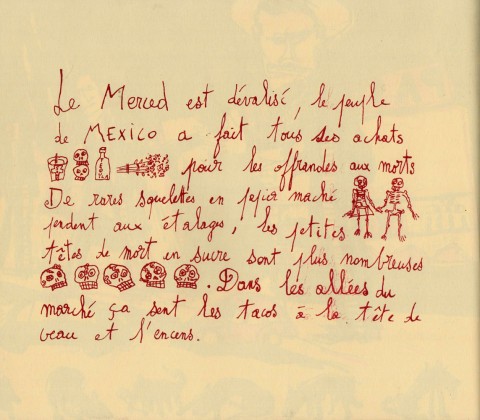 Le Merced est dévalisé, le peuple
de MEXICO a fait tous ses achats
pour les offrandes aux morts
De rares squelettes en papier maché
pendent aux étalages, les petites
têtes de mort en sucre sont plus nombreuses
. Dans les allées du
marché ça sent les tacos à la tête de
veau et l'encens.